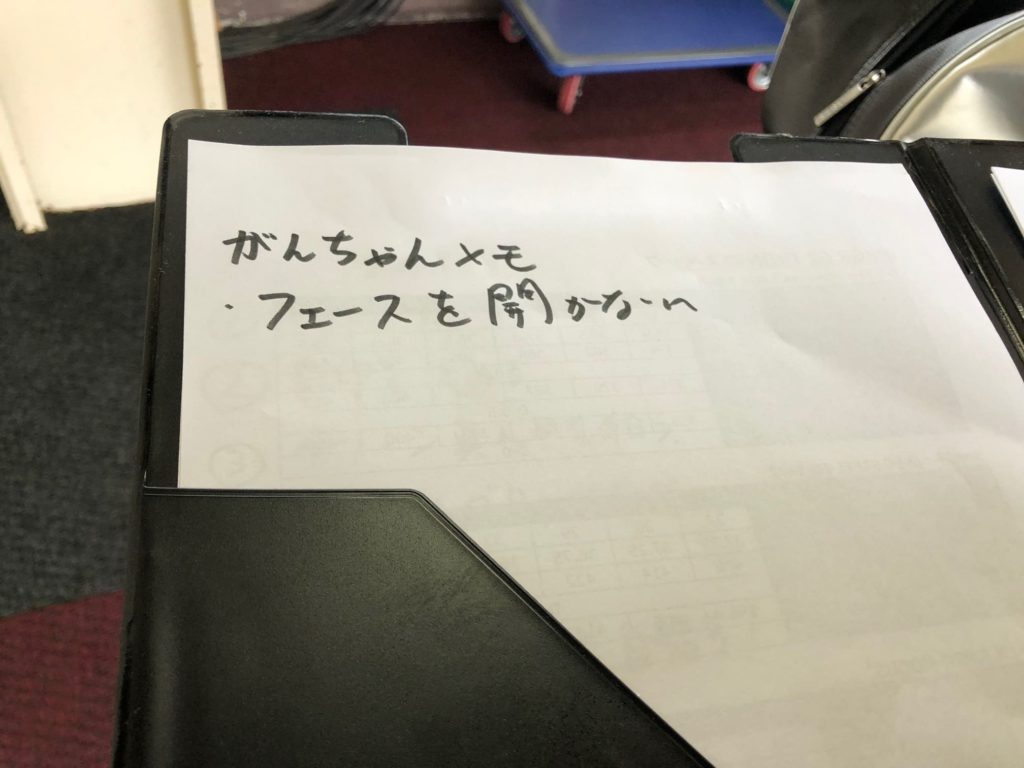 がんちゃんメモ
・フェースを開かない